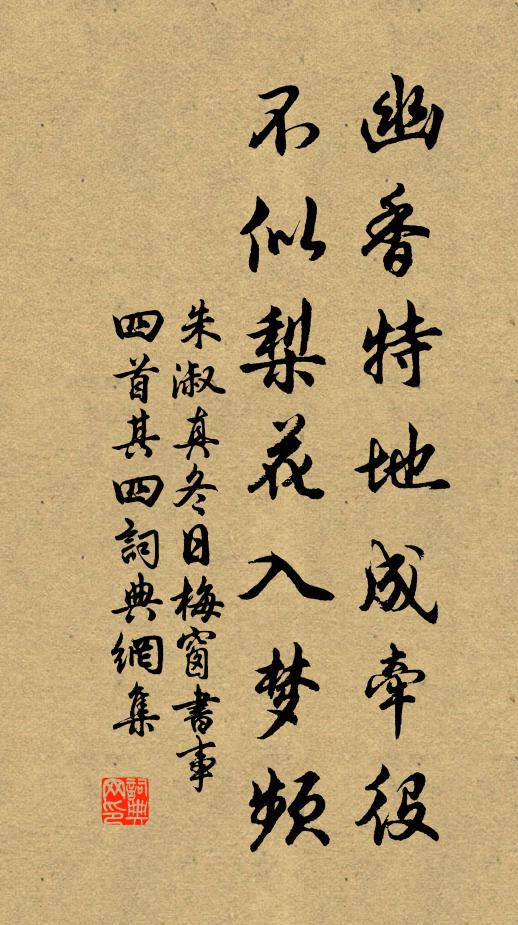 幽香特地成牽役
不似梨花入梦頻
朱淑真冬日梅窗書事
四首其四詞典網集
詞典
网印